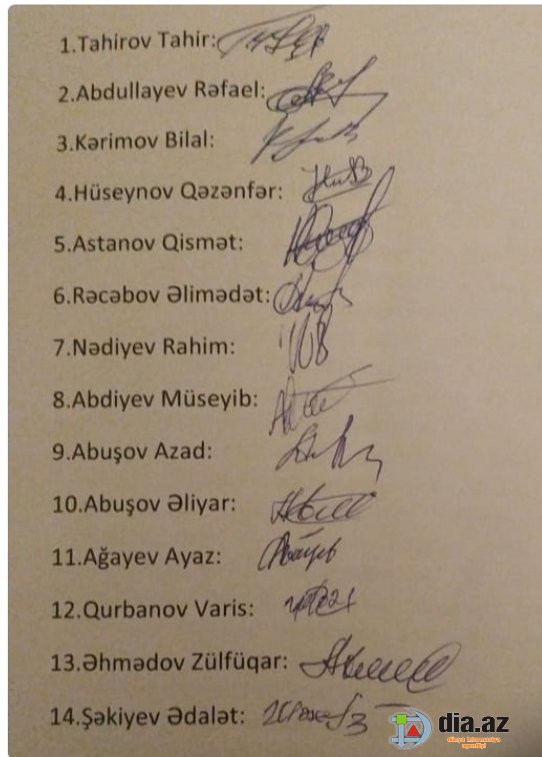 1.Tahirov Tahir:
2.Abdullayev Rəfael:
3.Kərimov Bilal:
4.Hüseynov Qəzənfər:
5.Astanov Qismət:
6.Rəcəbov Əlimədət:
7.Nədiyev Rahim:
8.Abdiyev Müseyib:
9.Abuşov Azad:
10.Abuşov Əliyar:
11.Ağayev Ayaz:
12.Qurbanov Varis:
13.Əhmədov Zülfüqar:
14.Şəkiyev Ədalət:
dia.az
dünya informasiya
agentliyi